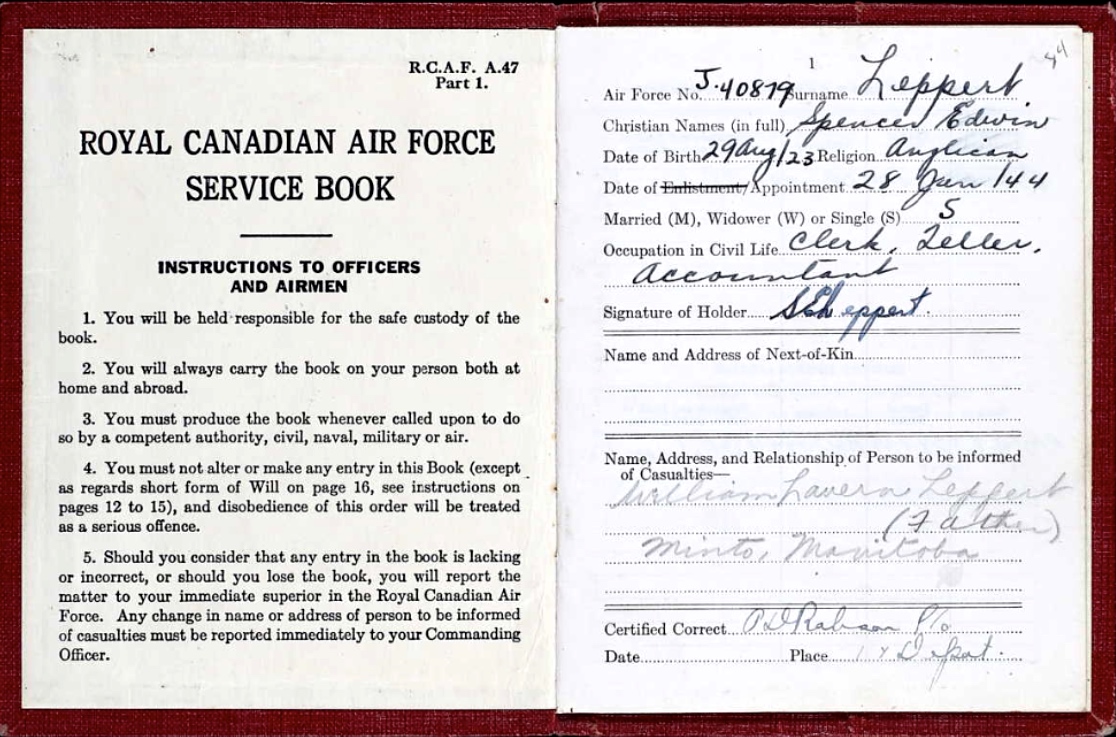 R.C.A.F. A.47
Part 1.
ROYAL CANADIAN AIR FORCE
SERVICE BOOK
INSTRUCTIONS TO OFFICERS
AND AIRMEN
1. You will be held responsible for the safe custody of the
book.
2. You will always carry the book on your person both at
home and abroad.
3. You must produce the book whenever called upon to do
so by a competent authority, civil, naval, military or air.
4. You must not alter or make any entry in this Book (except
as regards short form of Will on page 16, see instructions on
pages 12 to 15), and disobedience of this order will be treated
as a serious offence.
5. Should you consider that any entry in the book is lacking
or incorrect, or should you lose the book, you will report the
matter to your immediate superior in the Royal Canadian Air
Force. Any change in name or address of person to be informed
of casualties must be reported immediately to your Commanding
Officer.
1
Air Force No. J.40879 Surname Leppert
Christian Names (in full) Spencer Edwin
Date of Birth 29 Aug/23 Religion Anglican
Date of Enlistment/Appointment 28 Jan /44
Married (M), Widower (W) or Single (S) S
Occupation in Civil Life Clerk, Teller,
Accountant
Signature of Holder SELeppert.
Name and Address of Next-of-Kin
Name, Address, and Relationship of Person to be informed
of Casualties—
William Lavern Leppert
(Father)
Minto, Manitoba
Certified Correct P/O
Date Place Depot.